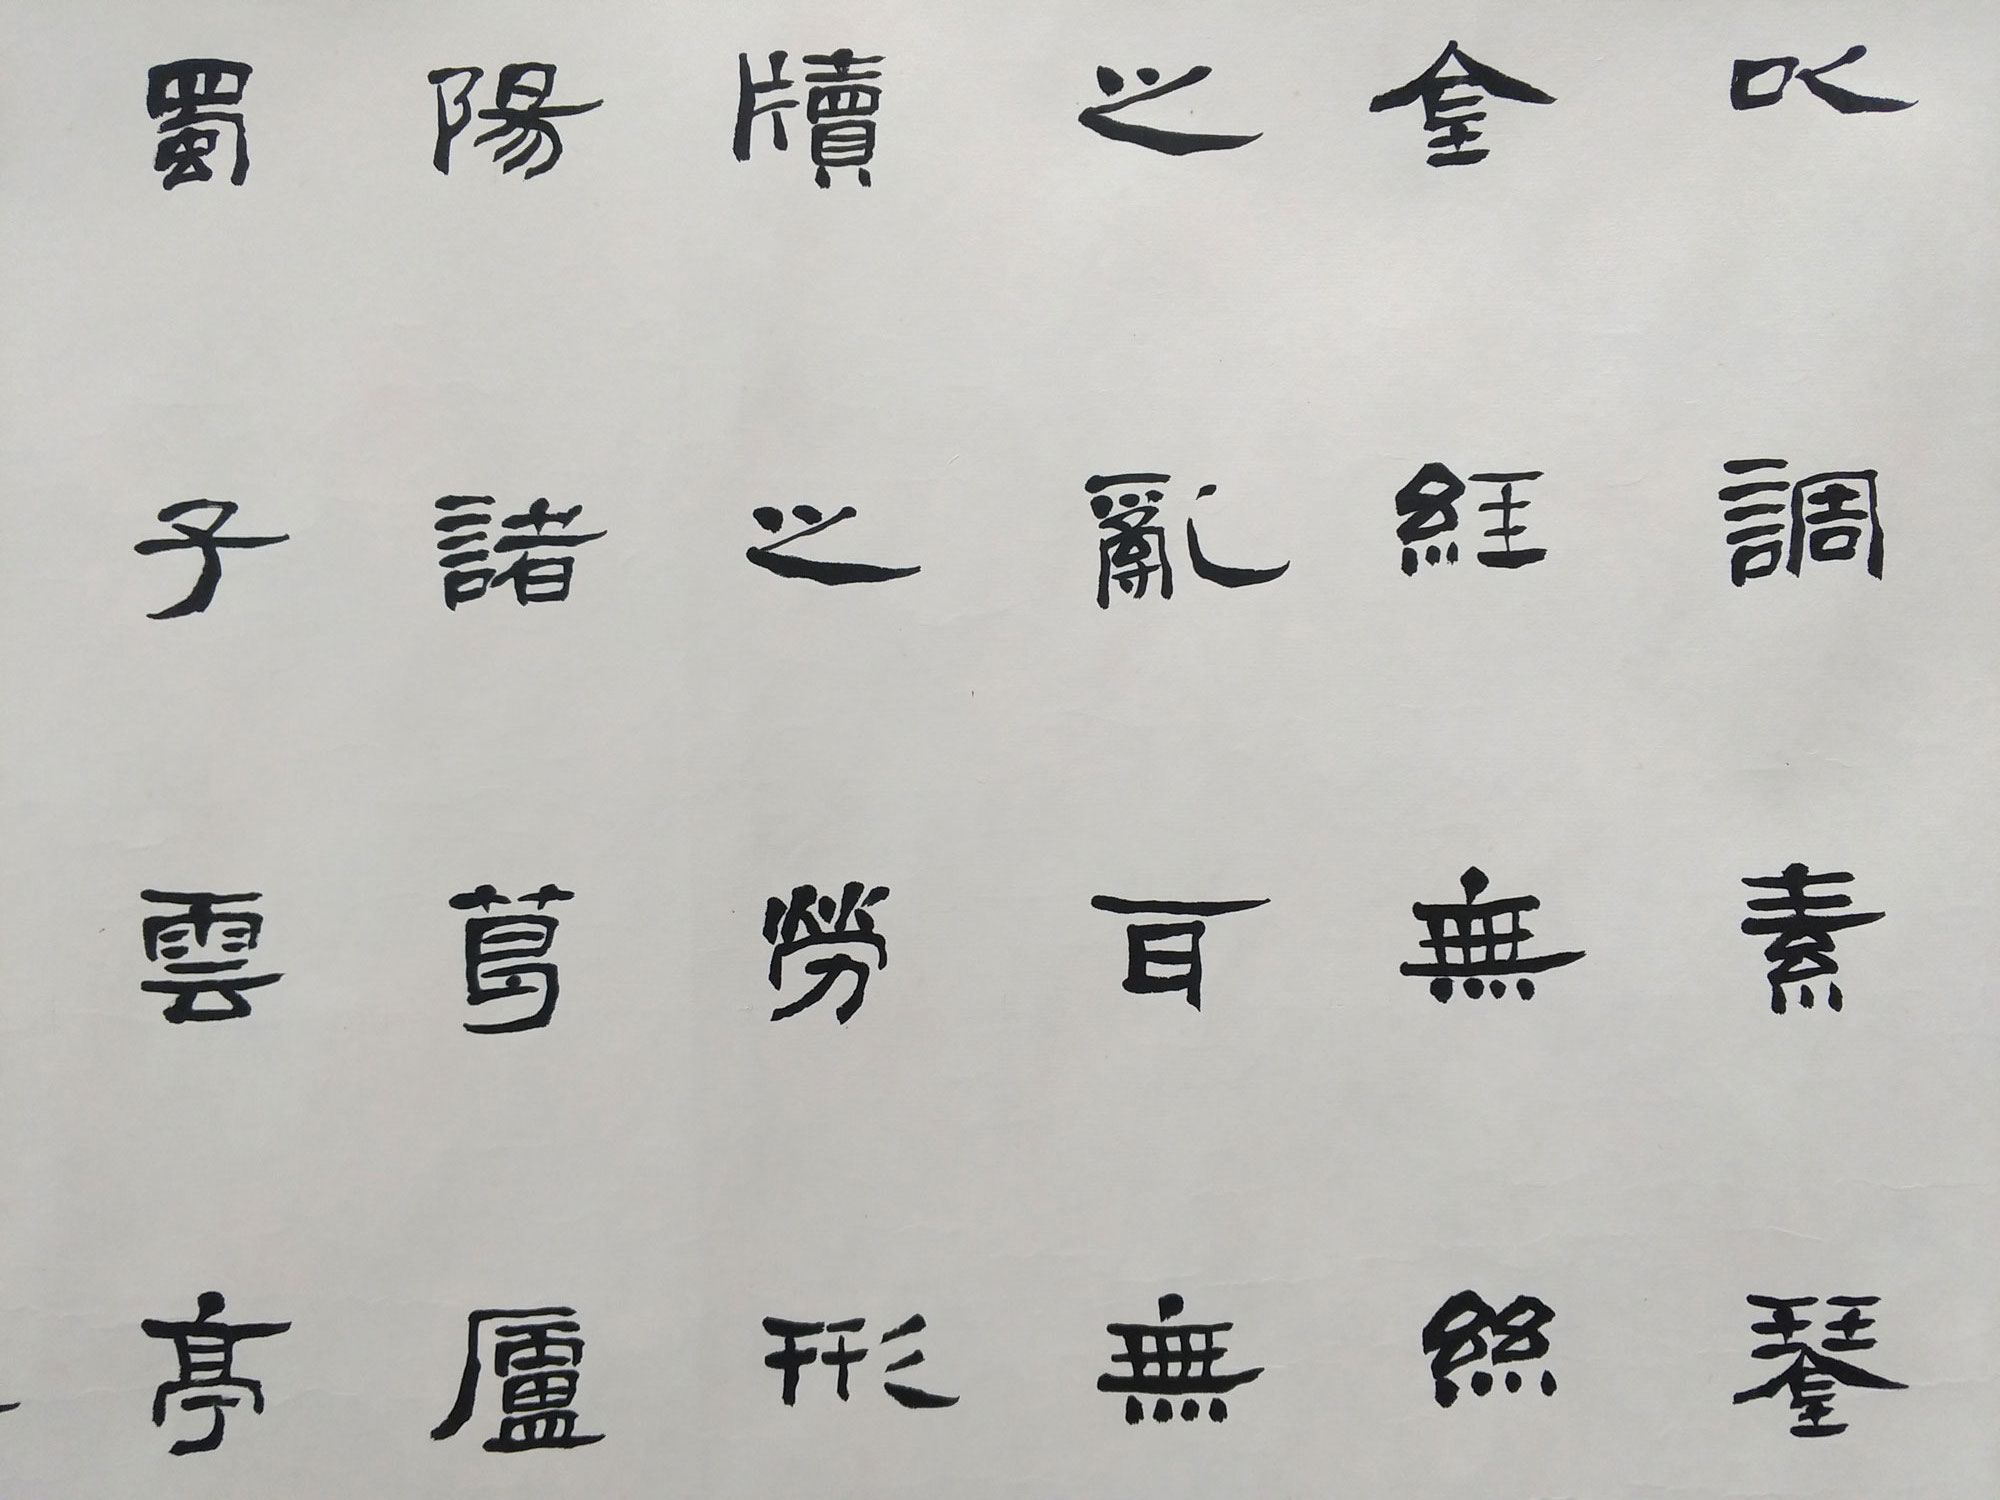 以調素琴
金經無絲
之亂耳無
牘之勞形
陽諸葛廬
蜀子雲亭